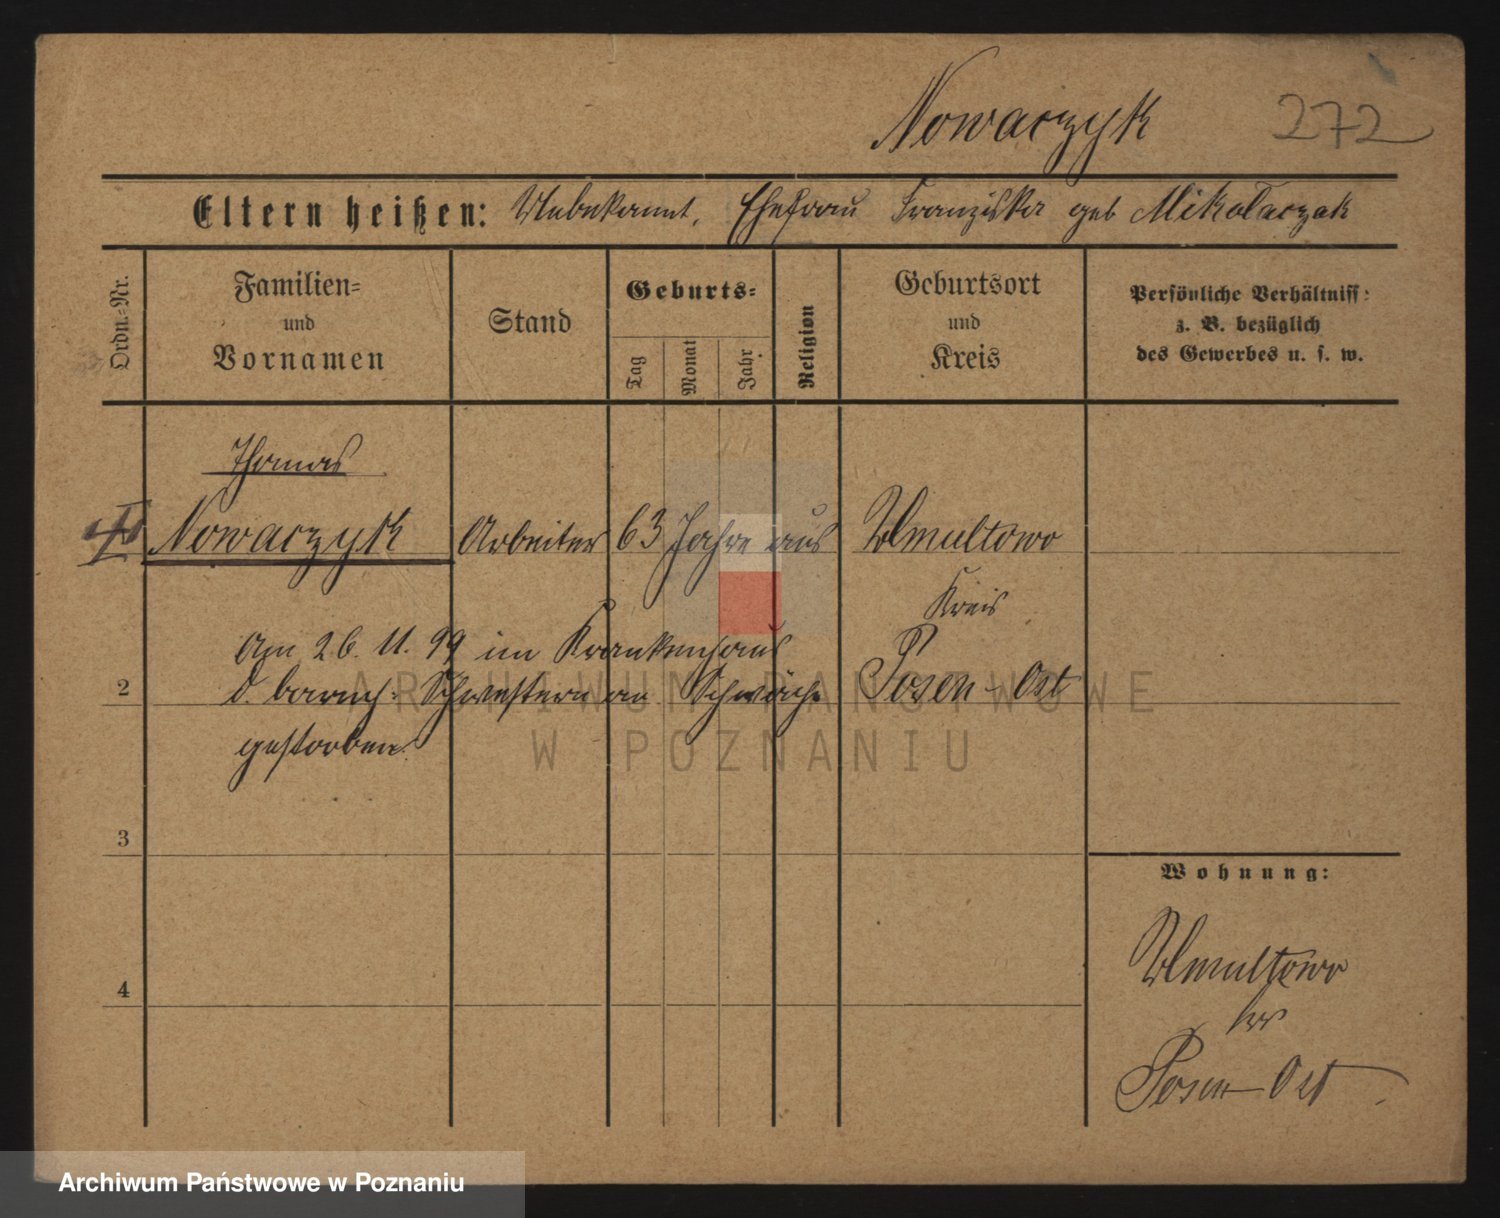 Nowaczyk 272
Eltern heißen: Unbekannt, Ehefrau Franziska geb Mikołaczak
Ordn.-Nr.
Familien-
und
Vornamen
Stand
Geburts-
Tag
Monat
Jahr
Religion
Geburtsort
und
Kreis
Persönliche Verhältniss:
z. B. bezüglich
des Gewerbes u. s. w.
Thomas
Nowaczyk Arbeiter 63 Jahre aus Umultowo
Kreis
Posen-Ost
am 26. 11. 99 im Krankenhaus
d. barmh. Schwestern an Schwäche
gestorben.
2
3
4
Wohnung:
Umultowo
Krs
Posen-Ost
ARCHIWUM PAŃSTWOWE
W POZNANIU
Archiwum Państwowe w Poznaniu